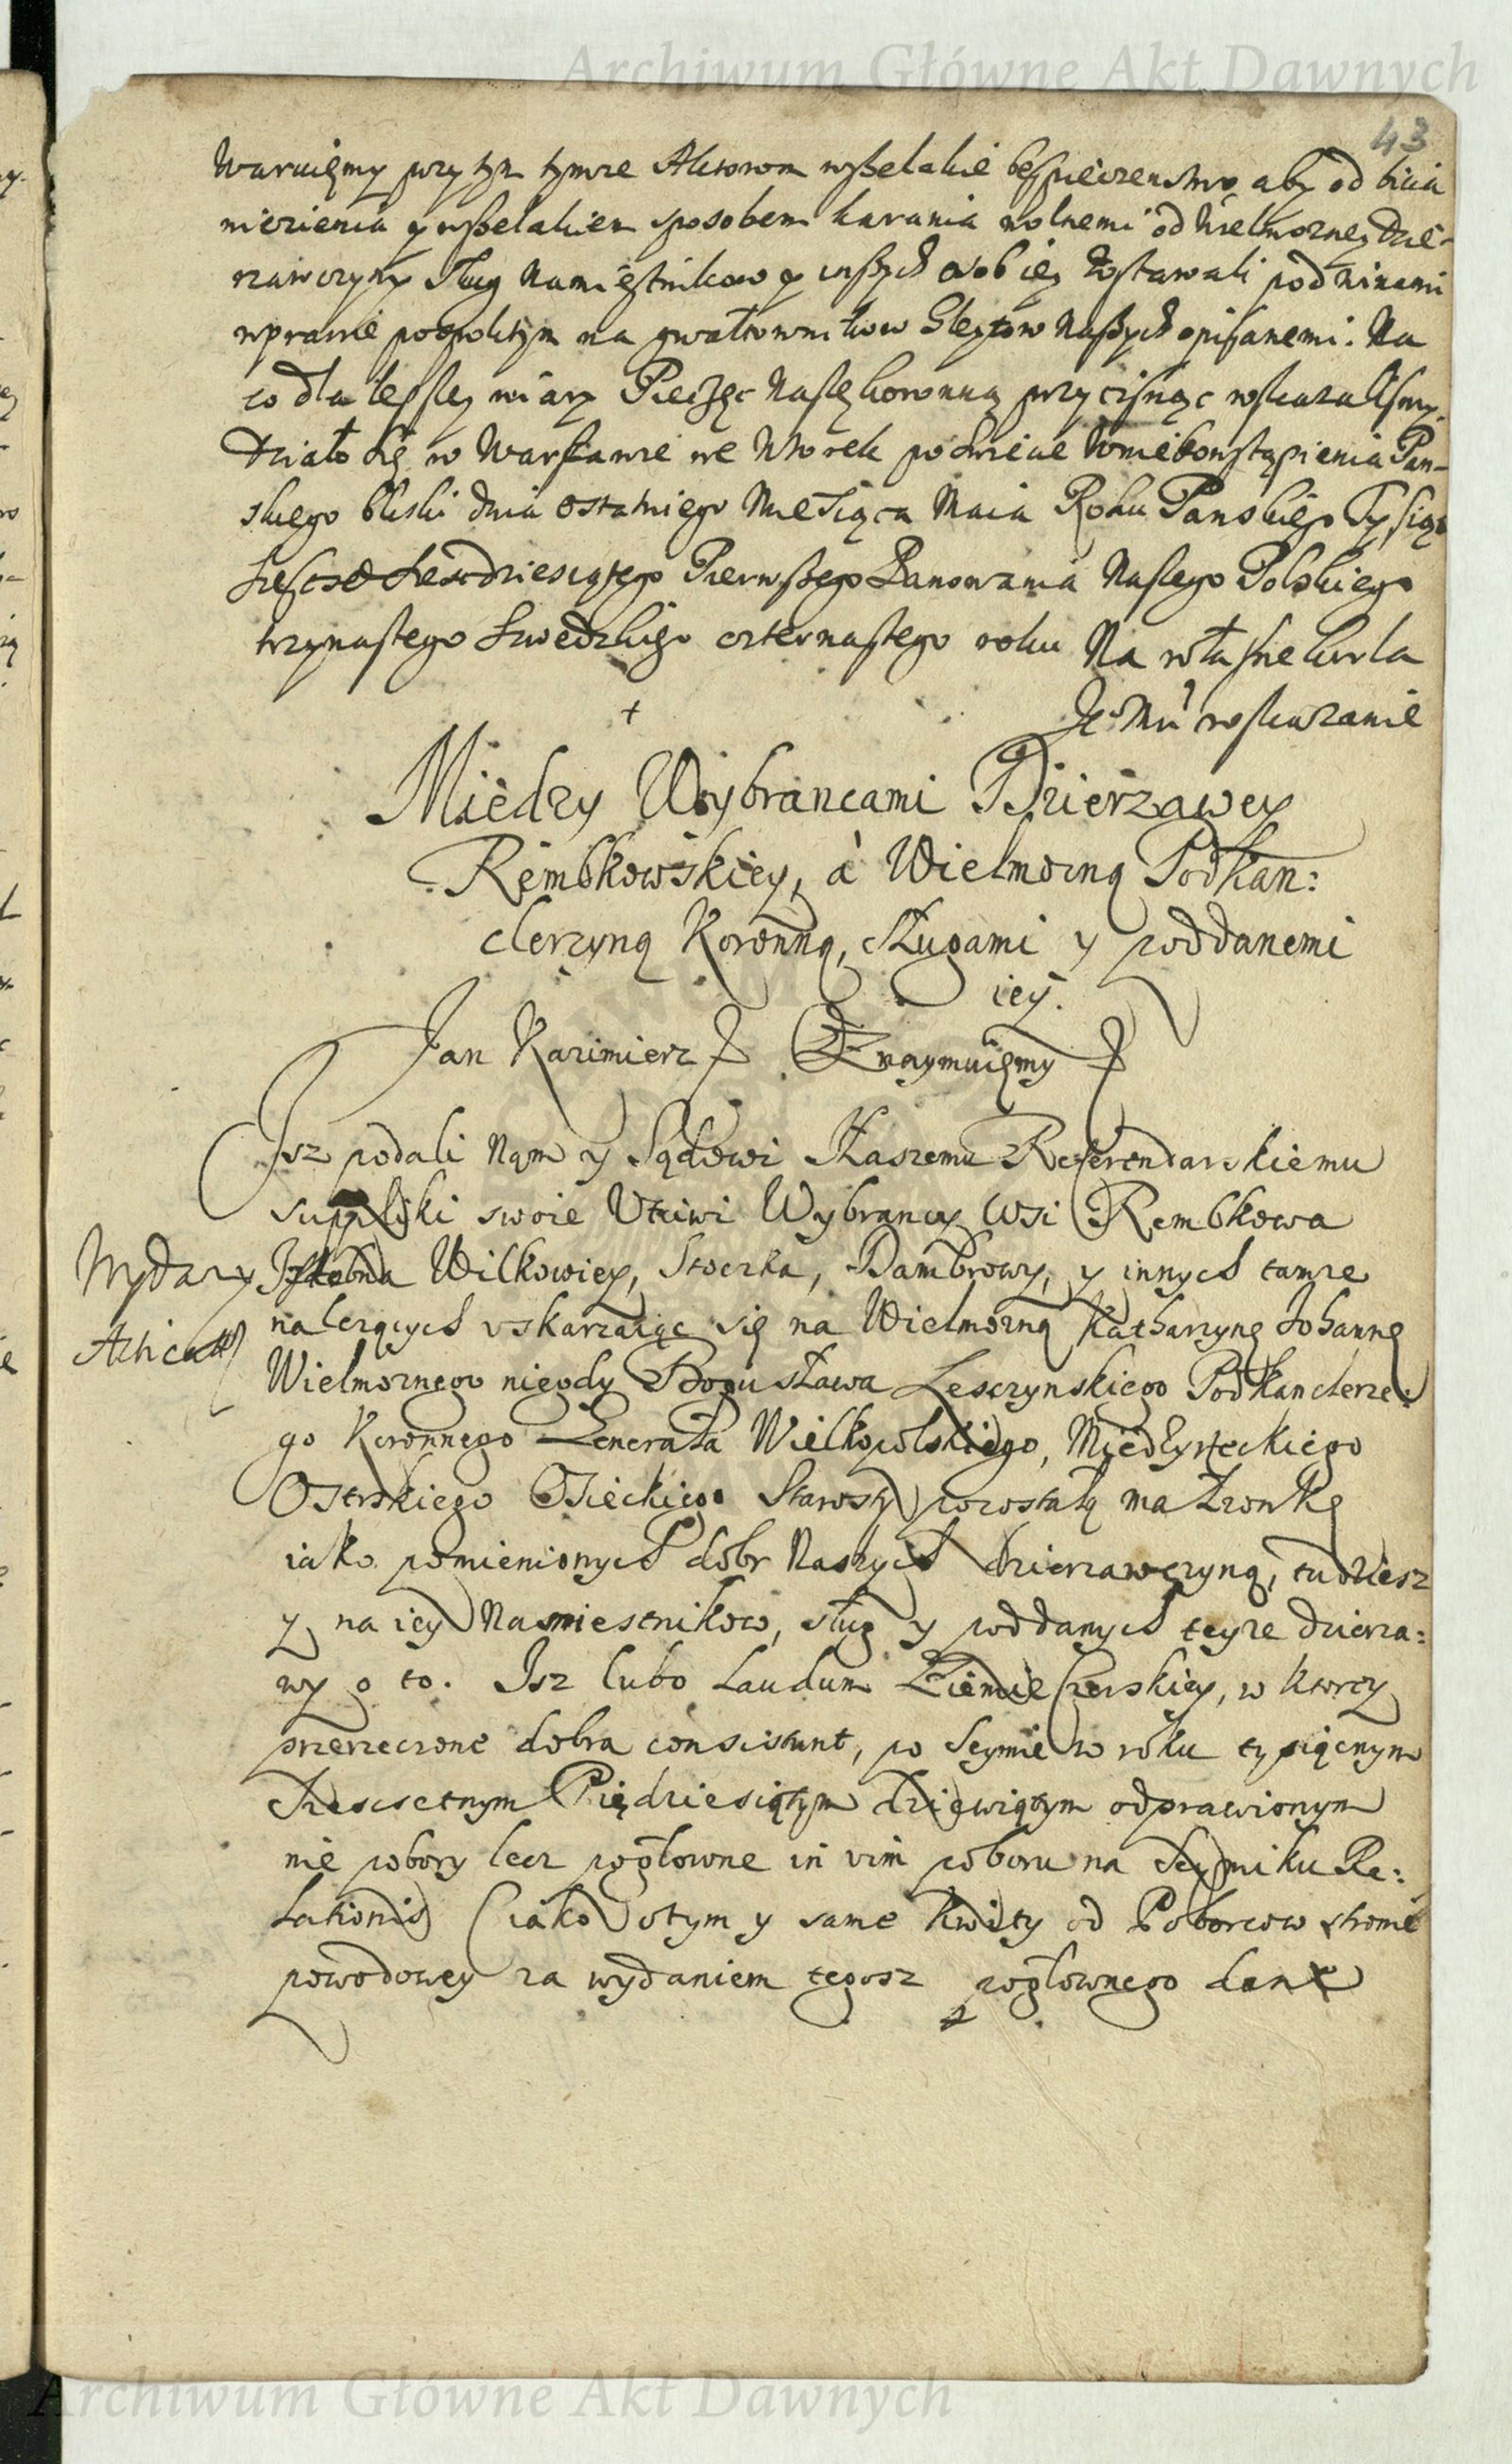 Archiwum Główne Akt Dawnych
43
Waruięmy przy tym tymze Aktorom wszelakie bespieczenstwo aby od bicia
wiezienia y wszelakiem sposobem karania wolnemi od Wielmozney Dzie-
rzawczyny Sług Namięstnikow y inszych osob iey zostawali pod winami
w prawie pospolitym na gwałtownikow Gleytow Naszych opisanemi. Na
co dla lepszey wiary Pieczęc Naszę koronną przycisnąc rozkazalismy.
Działo się w Warszawie we Wtorek po Swięcie Wniebowstąpienia Pan-
skiego bliski dnia ostatniego Miesiąca Maia Roku Panskiego Tysiąc
szescset szescdziesiątego Pierwszego Panowania Naszego Polskiego
trzynastego Szwedzkiego czternastego roku Na własne Krola
Je° Mci roskazanie
Miedzy Wybrancami Dzierzawey
Rembkowskiey, á Wielmozną Podkan:
clerzyną Koronną, sługami y poddanemi
iey.
Jan Kazimierz Oznaymuięmy
Isz podali Nąm y Sądowi Naszemu Referendarskiemu
suppliki swoie Utciwi Wybrancy Wsi Rembkowa
Wydany Izdebna Wilkowiey, Stoczka, Dambrowy, y innych tamze
nalezących vskarzaiąc się na Wielmozną Katharzynę Johannę
Wielmoznego niegdy Bogusława Lesczynskiego Podkanclerze:
go Koronnego Generała Wielkopolskiego, Miedzyrzeckiego
Osterskiego Osieckiego Starosty pozostałą małzonkę
iako pomienionych dobr Naszych dzierzawczyną, tudziesz
y na iey Namiestnikow, sług y poddanych teyze dzierza:
wy o to. Isz lubo Laudum Ziemie Czerskiey, w ktorey
przerzeczone dobra consistunt, po Seymie w roku tysiącnym
szescsetnym Piędziesiątym dziewiątym odprawionym
nie pobory lecz pogłowne in vim poboru na Seymiku Re:
lationis (iako o tym y same kwity od Poborcow stronie
powodowey za wydaniem tegosz pogłownego dane
Archiwum Główne Akt Dawnych